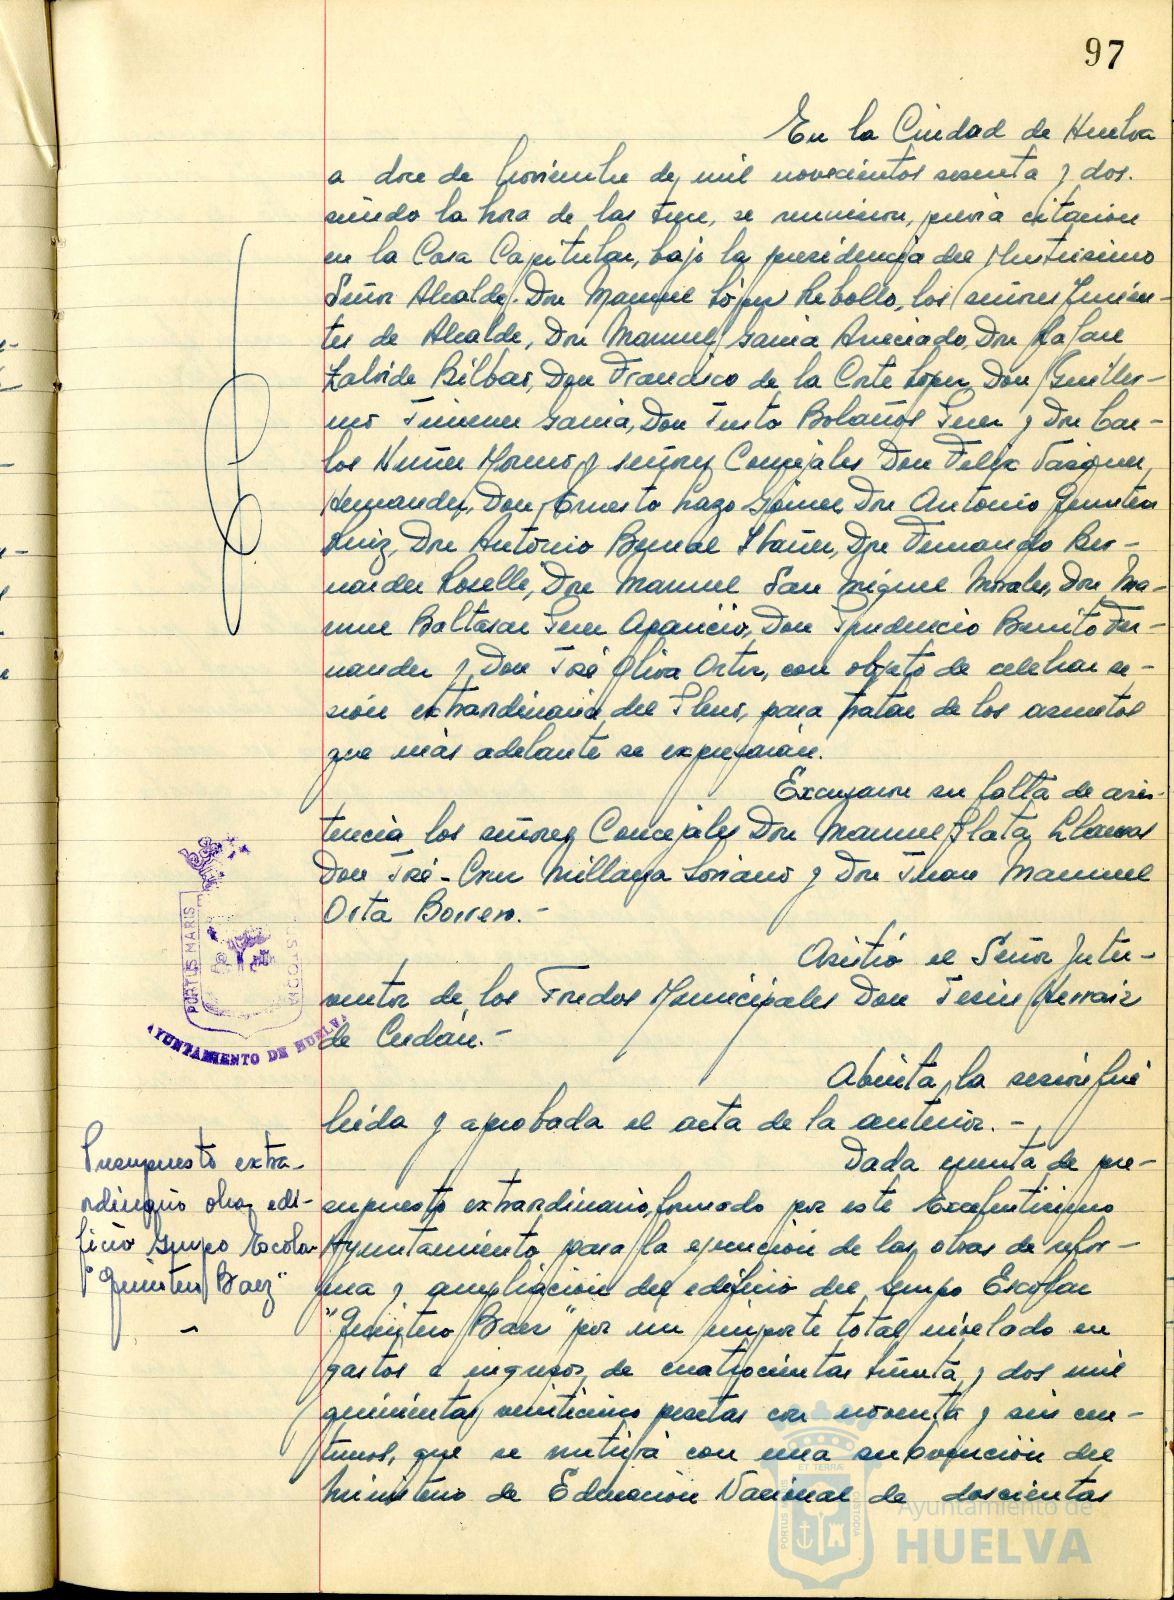 97
En la Ciudad de Huelva
a doce de Noviembre de mil novecientos sesenta y dos.
siendo la hora de las trece, se reunieron, previa citación
en la Casa Capitular, bajo la presidencia del Ilustrisimo
Señor Alcalde Don Manuel López Rebollo, los señores Tenien-
tes de Alcalde, Don Manuel Garcia Don Rafael
Bilbao, Don Francisco de la Corte López Don Guiller-
mo Jimenez Garcia, Don Justo Bolaños Perez y Don Car-
los Nuñez Moreno y señores Concejales Don Felix Vazquez
Hernandez, Don Ernesto Lazo Gómez Don Antonio Quintero
Ruiz, Don Antonio Bernal Ibañez, Don Fernando Ber-
nardez Roselló, Don Manuel San Miguel Morales, Don Ma-
nuel Baltasar Perez Aparicio, Don Prudencio Benito Fer-
nandez y Don José Oliva Ortiz, con objeto de celebrar se-
sión extraordinaria del Pleno, para tratar de los asuntos
que más adelante se expresarán.
Excusaron su falta de asis-
tencia los señores Concejales Don Manuel Plata Llamas
Don José-Cruz Millaga Soriano y Don Juan Manuel
Orta Borrero.-
Asistió el Señor Inter-
ventor de los Fondos Municipales Don Jesus Herraiz
de Cerdán.-
PORTUS MARIS
AYUNTAMIENTO DE HUELVA
Abierta la sesión fué
leida y aprobada el acta de la anterior.-
Presupuesto extra-
ordinario obras edi-
ficio Grupo Escolar
"Quintero Baez"
Dada cuenta de pre-
supuesto extraordinario, formado por este Excelentisimo
Ayuntamiento para la ejecución de las obras de refor-
ma y ampliación del edificio del Grupo Escolar
"Quintero Baez" por un importe total nivelado en
gastos e ingresos, de cuatrocientas treinta y dos mil
quinientas veinticinco pesetas con noventa y seis cen-
timos, que se nutirá con una subvención del
Ministerio de Educación Nacional de doscientas
Ayuntamiento de
HUELVA